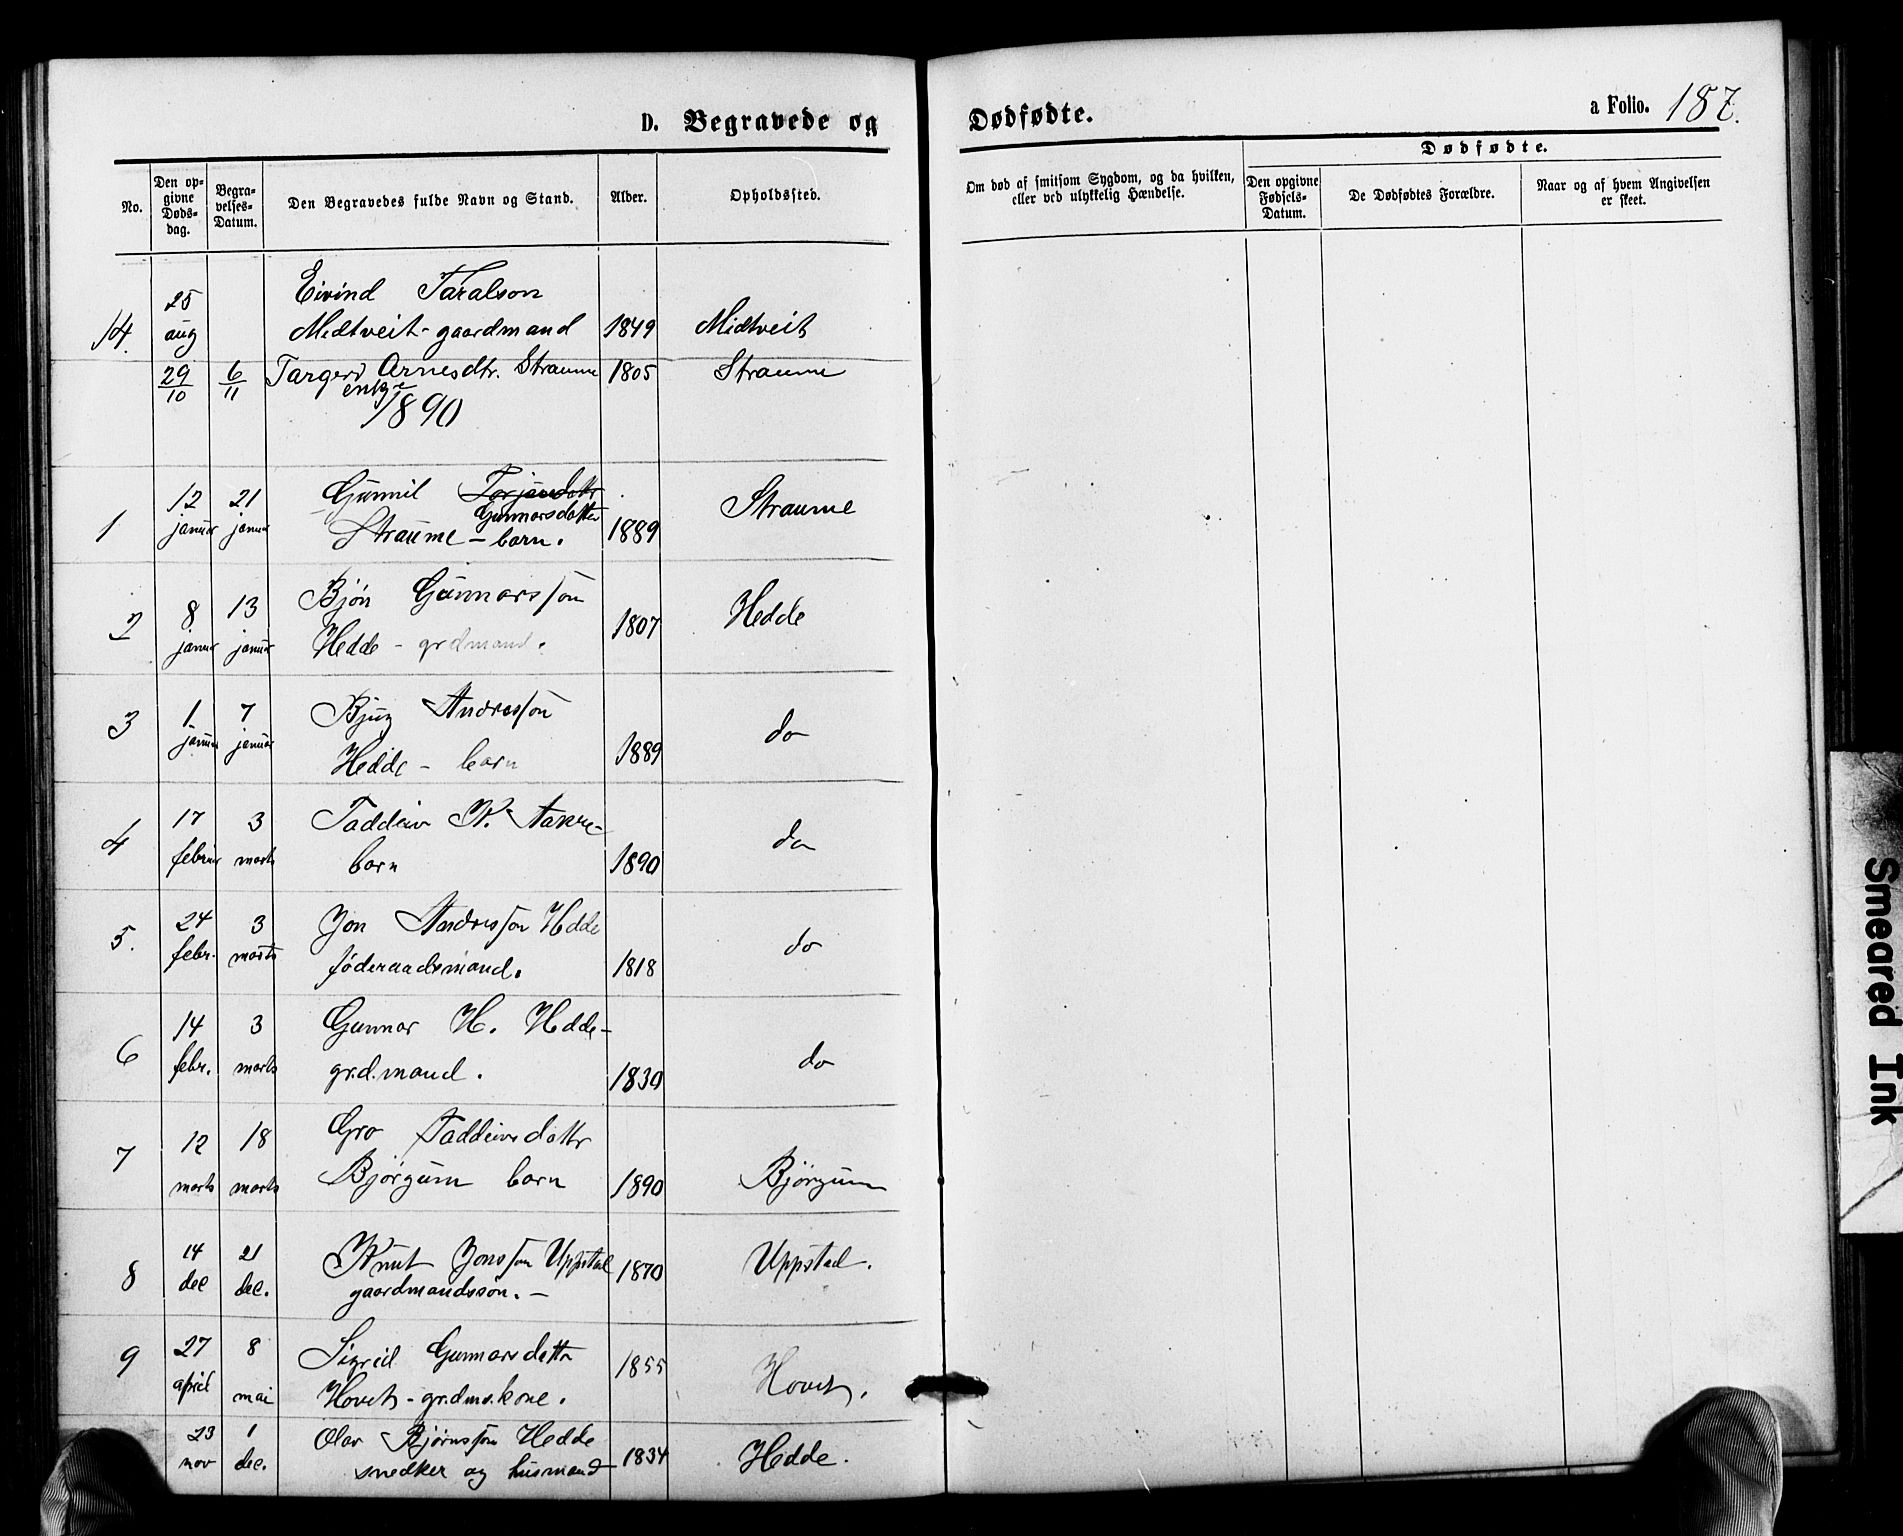 D. Begravede og Dødfødte.
a Folio. 187.
No.
Den op-
givne
Døds-
dag.
Begra-
velses-
Datum.
Den Begravedes fulde Navn og Stand.
Alder.
Opholdssted.
Om død af smitsom Sygdom, og da hvilken,
eller ved ulykkelig Hændelse.
Dødfødte.
Den opgivne
Fødsels-
Datum.
De Dødfødtes Forældre.
Naar og af hvem Angivelsen
er skeet.
14. 25 aug Eivind Taralson
Midtveit - gaardmand 1849 Midtveit
29/10 6/11 Targerd Arnesdtr. Straume 1805 Straume
enke
1890
1 12 januar 21 januar Gunnil Torjusdattr
Gunnarsdatter
Straume - barn. 1889 Straume
2 8 januar 13 januar Bjøn Gunnarsson
Hedde - grdmand. 1807 Hedde
3 1 januar 7 januar Bjug Andresson
Hedde - barn 1889 do
4 17 februar 3 marts Taddeiv K. Aakre -
barn 1890 do
5. 24 febr. 3 marts Jon Andresson Hedde
føderaadsmand. 1818 do
6 14 febr. 3 marts Gunnar H. Hedde -
gr.d.mand. 1830 do
7 12 marts 18 marts Gro Taddeivsdattr
Bjørgum barn 1890 Bjørgum
8 14 dec 21 dec. Knut Jonsson Uppstad 1870 Uppstad.
gaardmandssøn. -
9 27 april 8 mai Sigrid Gunnarsdattr 1855
Hovet - gr.dms.kone. Hovet.
23 nov 1 dec. Olav Bjørnsson Hedde
snedker og husmand 1834 Hedde.
Smeared Ink